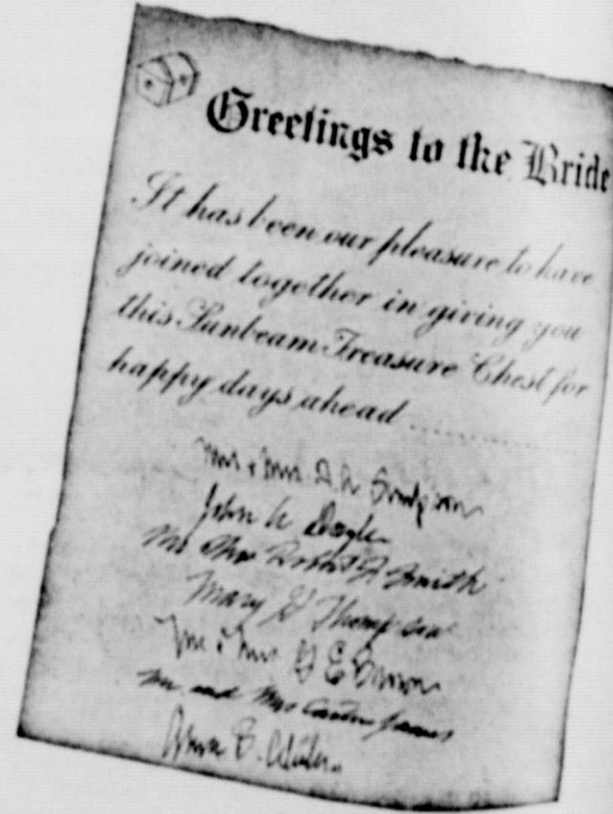 Greetings to the Bride
It has been our pleasure to have
joined together in giving you
this Sunbeam Treasure Chest for
happy days ahead ..............
Mr & Mrs
John
Mr & Mrs Robert Smith
Mary Thompson
Mr & Mrs E Brown
Mr and Mrs James